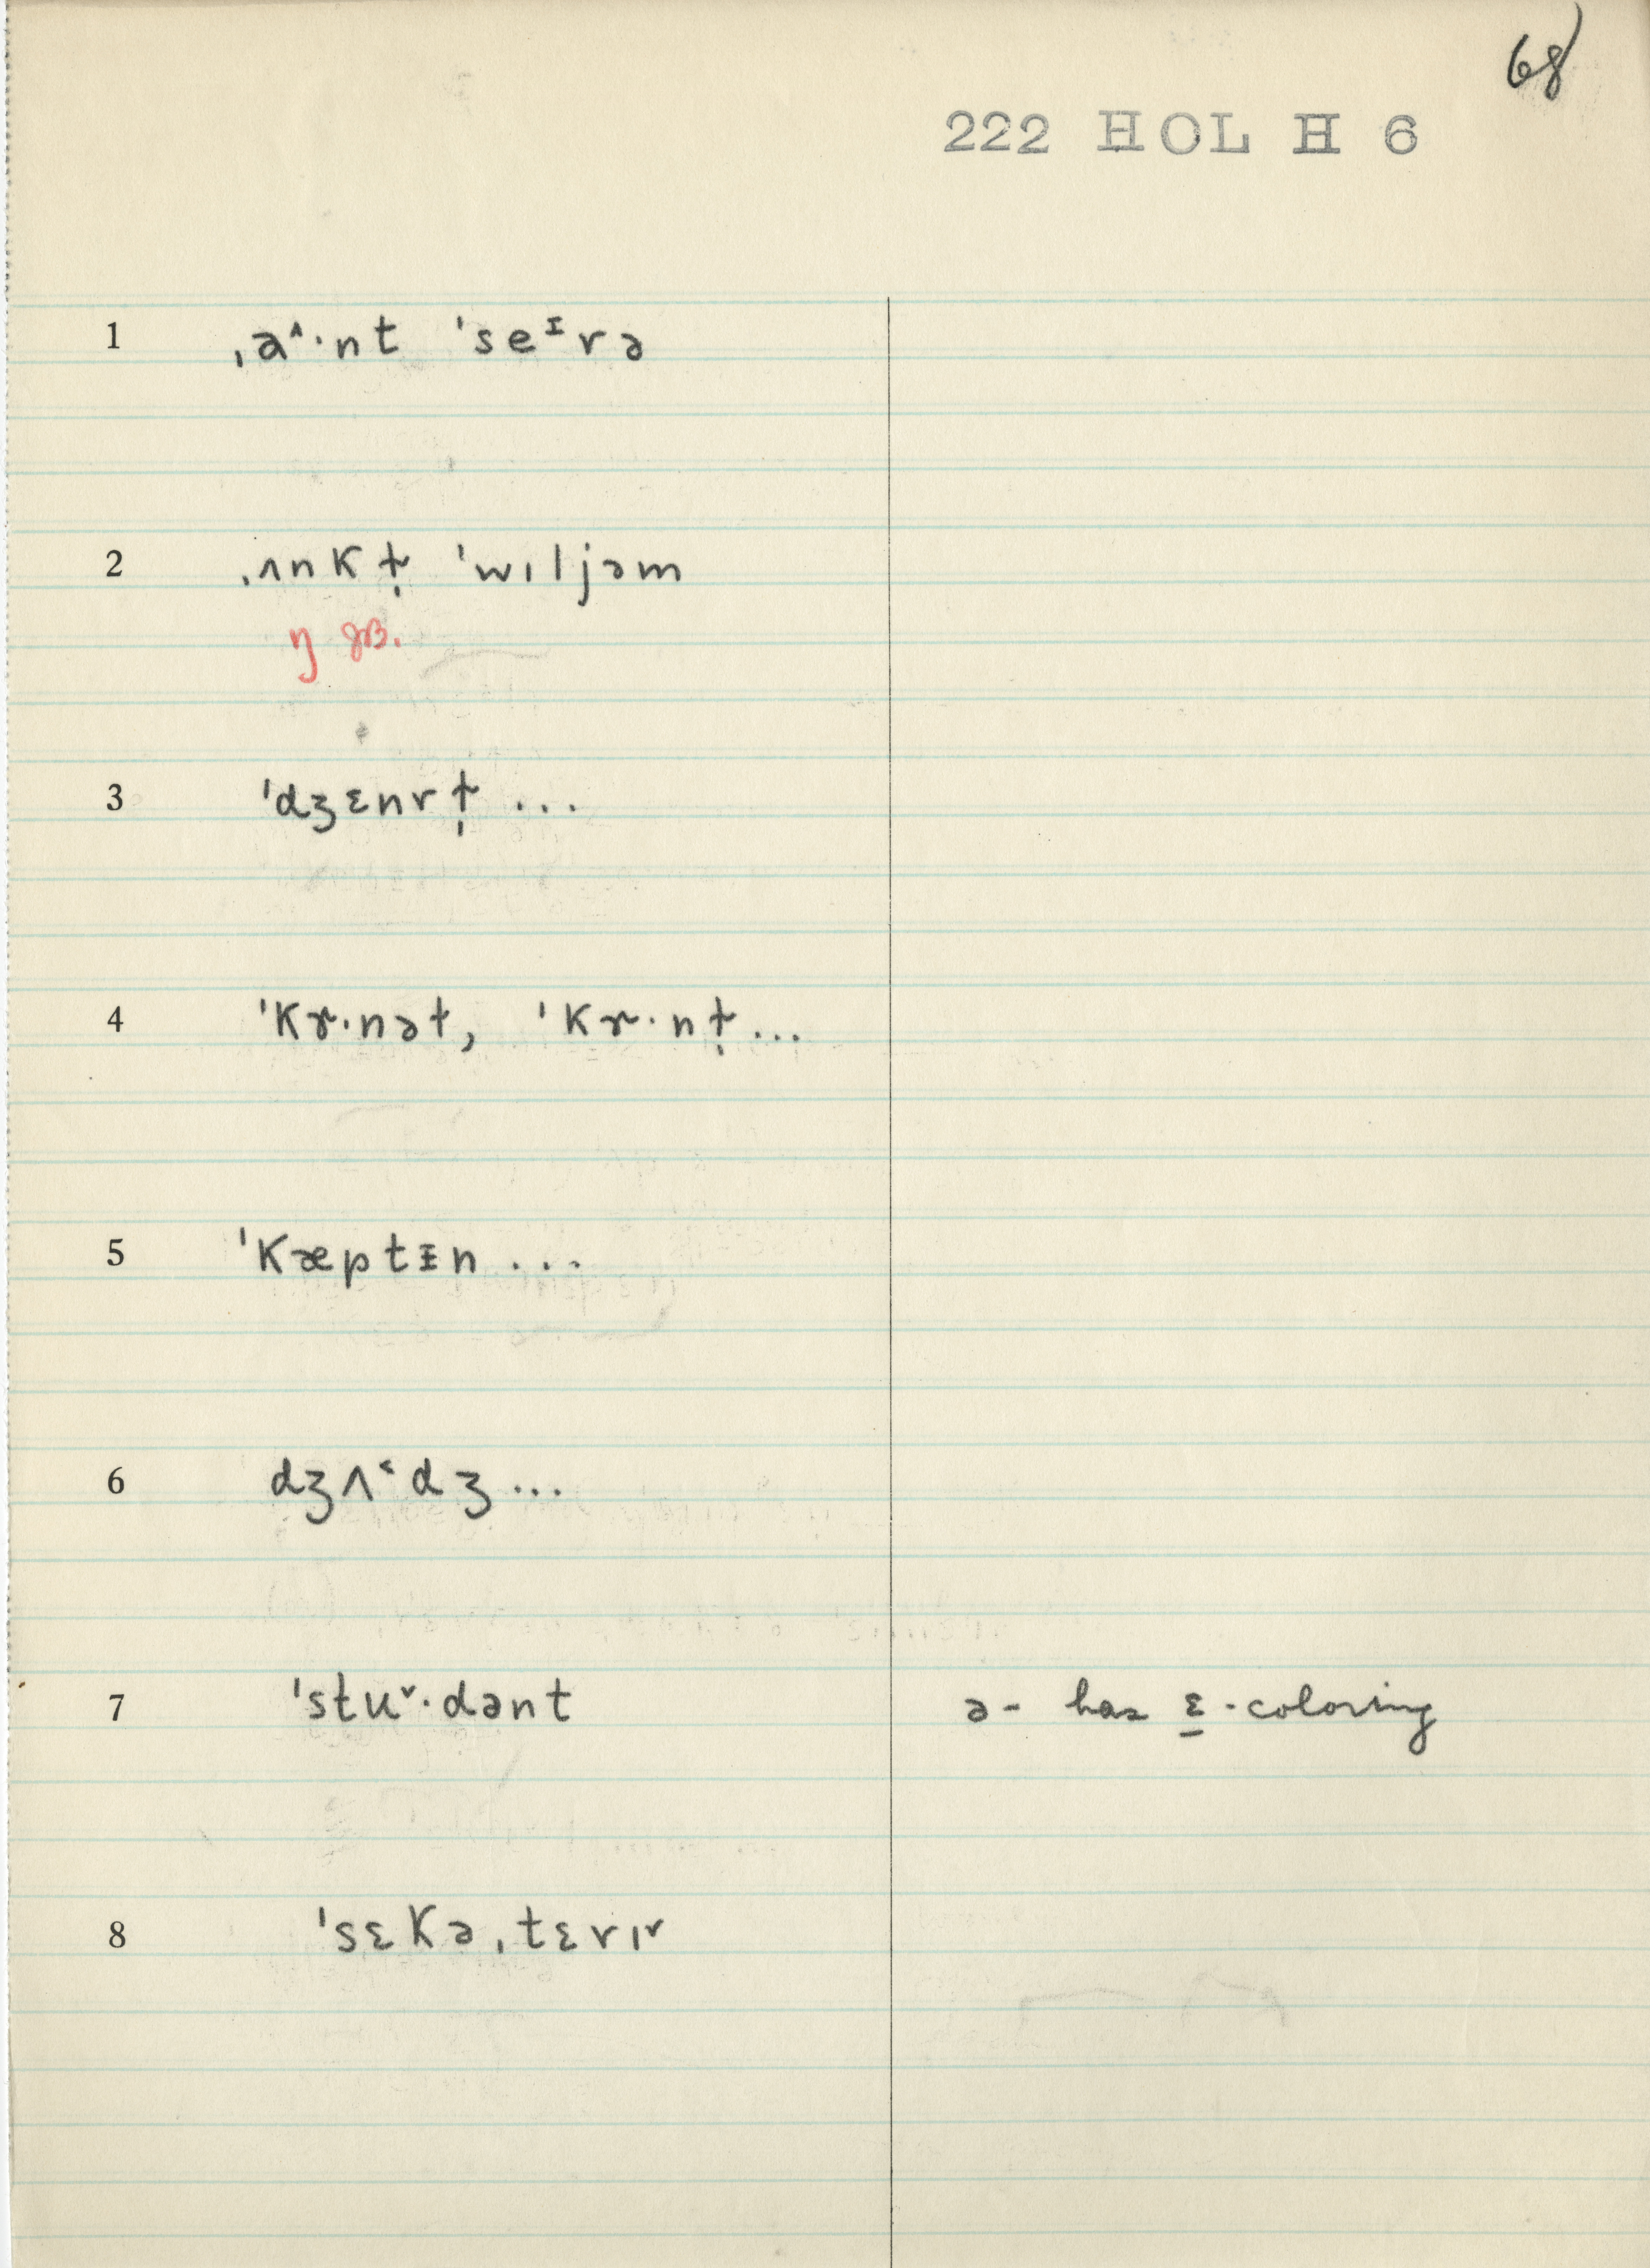 68
222 HOL H 6
1 ˌa˄·nt ˈseᶦrə
2 ˌʌnkɫ̩ ˈwɪljəm
ŋ
3 ˈdʒɛnrɫ̩ ...
4 ˈkɝ·nəɫ, ˈkɝ·nɫ̩ ...
5 ˈkæptɪn ...
6 dʒʌ˂dʒ ...
7 ˈstu˅·dənt ə - has ɛ - coloring
8 ˈsɛkəˌtɛrɪ˅